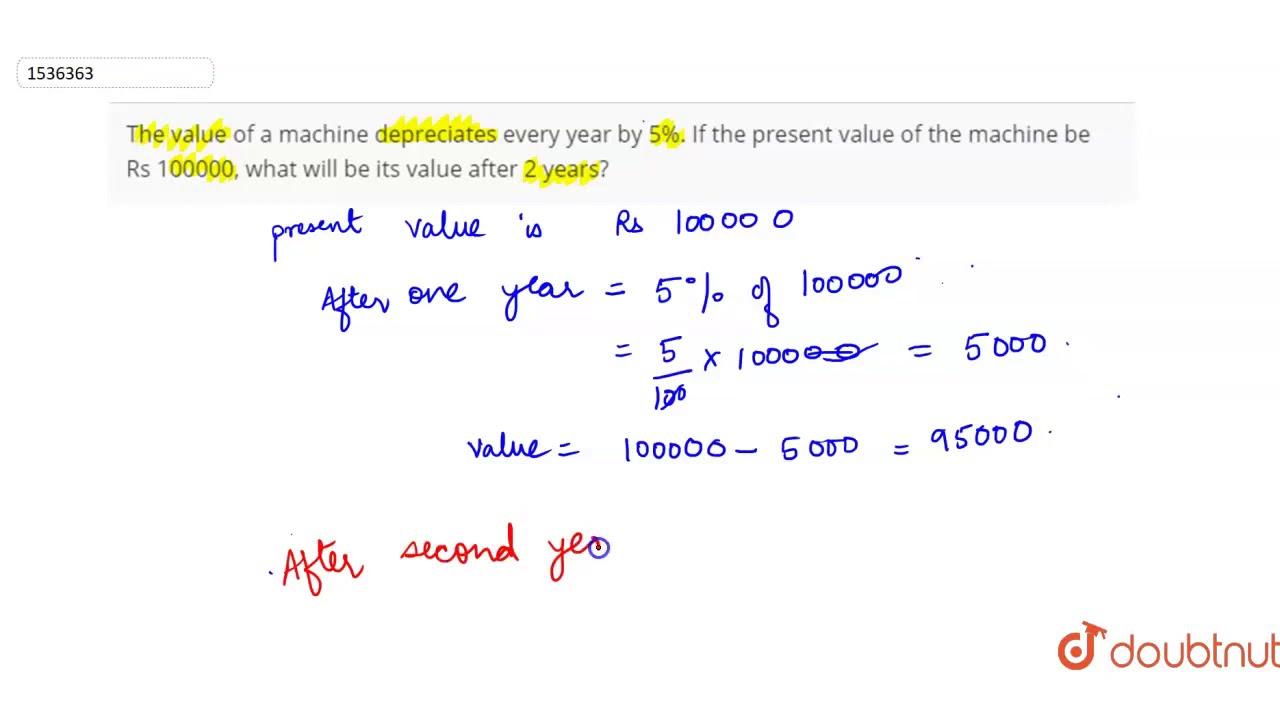 1536363
The value of a machine depreciates every year by 5%. If the present value of the machine be
Rs 100000, what will be its value after 2 years?
present value is Rs 100000
After one year = 5% of 100000
= 5/100 x 100000 = 5000.
value = 100000 - 5000 = 95000.
After second yea
doubtnut